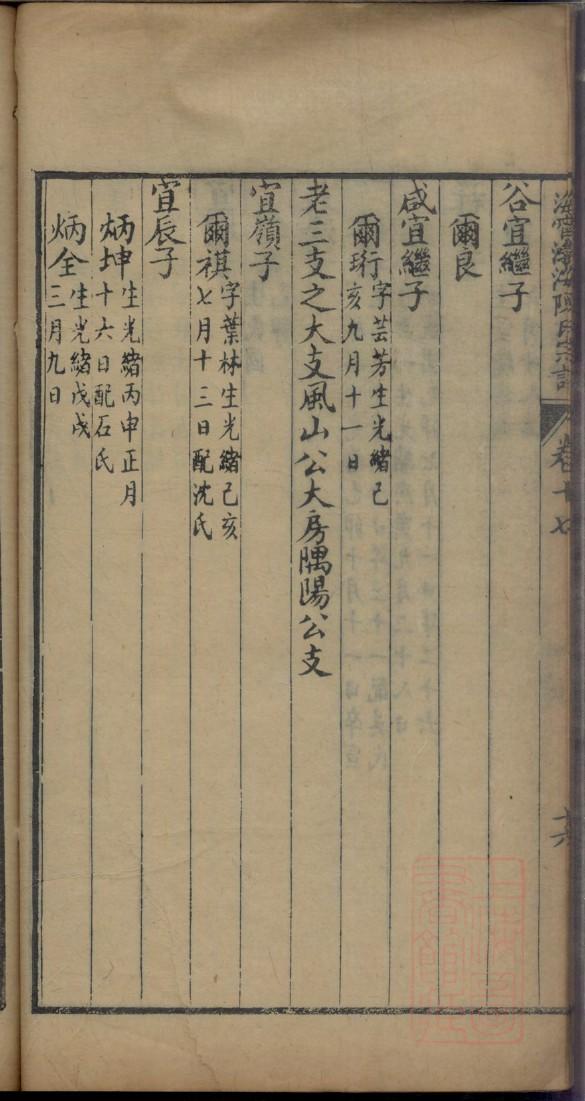 海甯渤海陳氏宗譜
卷十七
十六
谷宜繼子
爾良
咸宜繼子
爾珩字芸芳生光緒己
亥九月十一日
老三支之大支風山公大房隅陽公支
宜嶺子
爾祺字葉林生光緒己亥
七月十三日配沈氏
宜辰子
炳坤生光緒丙申正月
十六日配石氏
炳全生光緒戊戌
三月九日